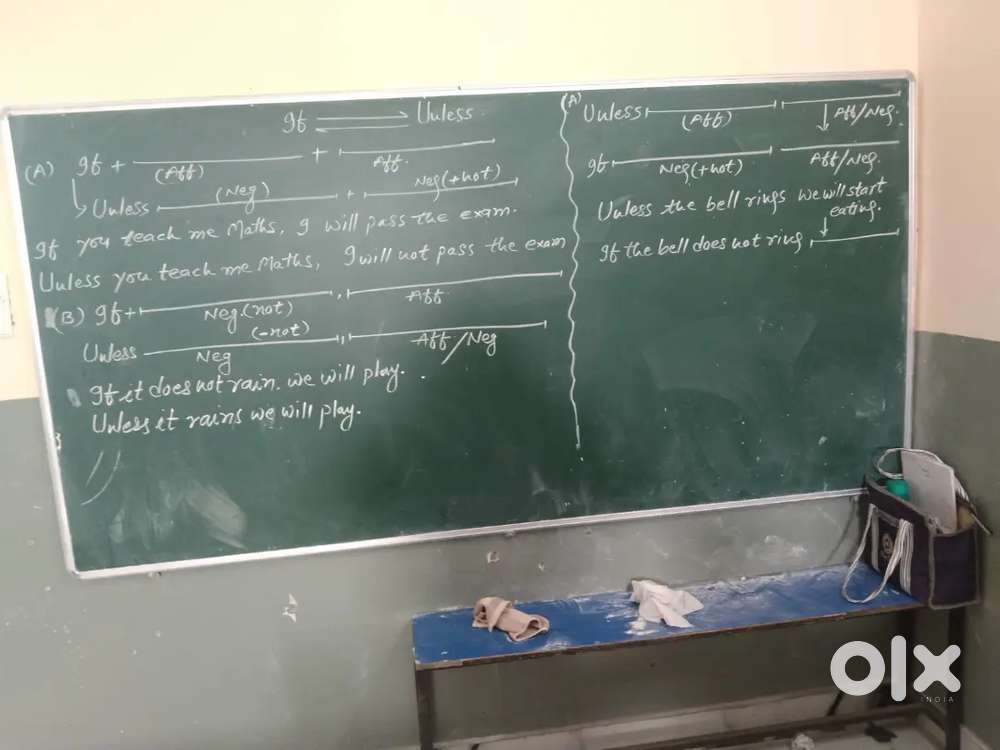 If ⇌ Unless
(A) If + (Aff) + Aff.
Unless (Neg) + Neg(+not)
If you teach me Maths, I will pass the exam.
Unless you teach me Maths, I will not pass the exam
(B) If+ Neg.(not) , Aff.
Unless (-not) Neg , Aff/Neg
If it does not rain we will play.
Unless it rains we will play.
(A) Unless (Aff) ↓ Aff/Neg.
If Neg(+not) Aff/Neg.
Unless the bell rings we will start
eating.
If the bell does not ring,
olx
INDIA